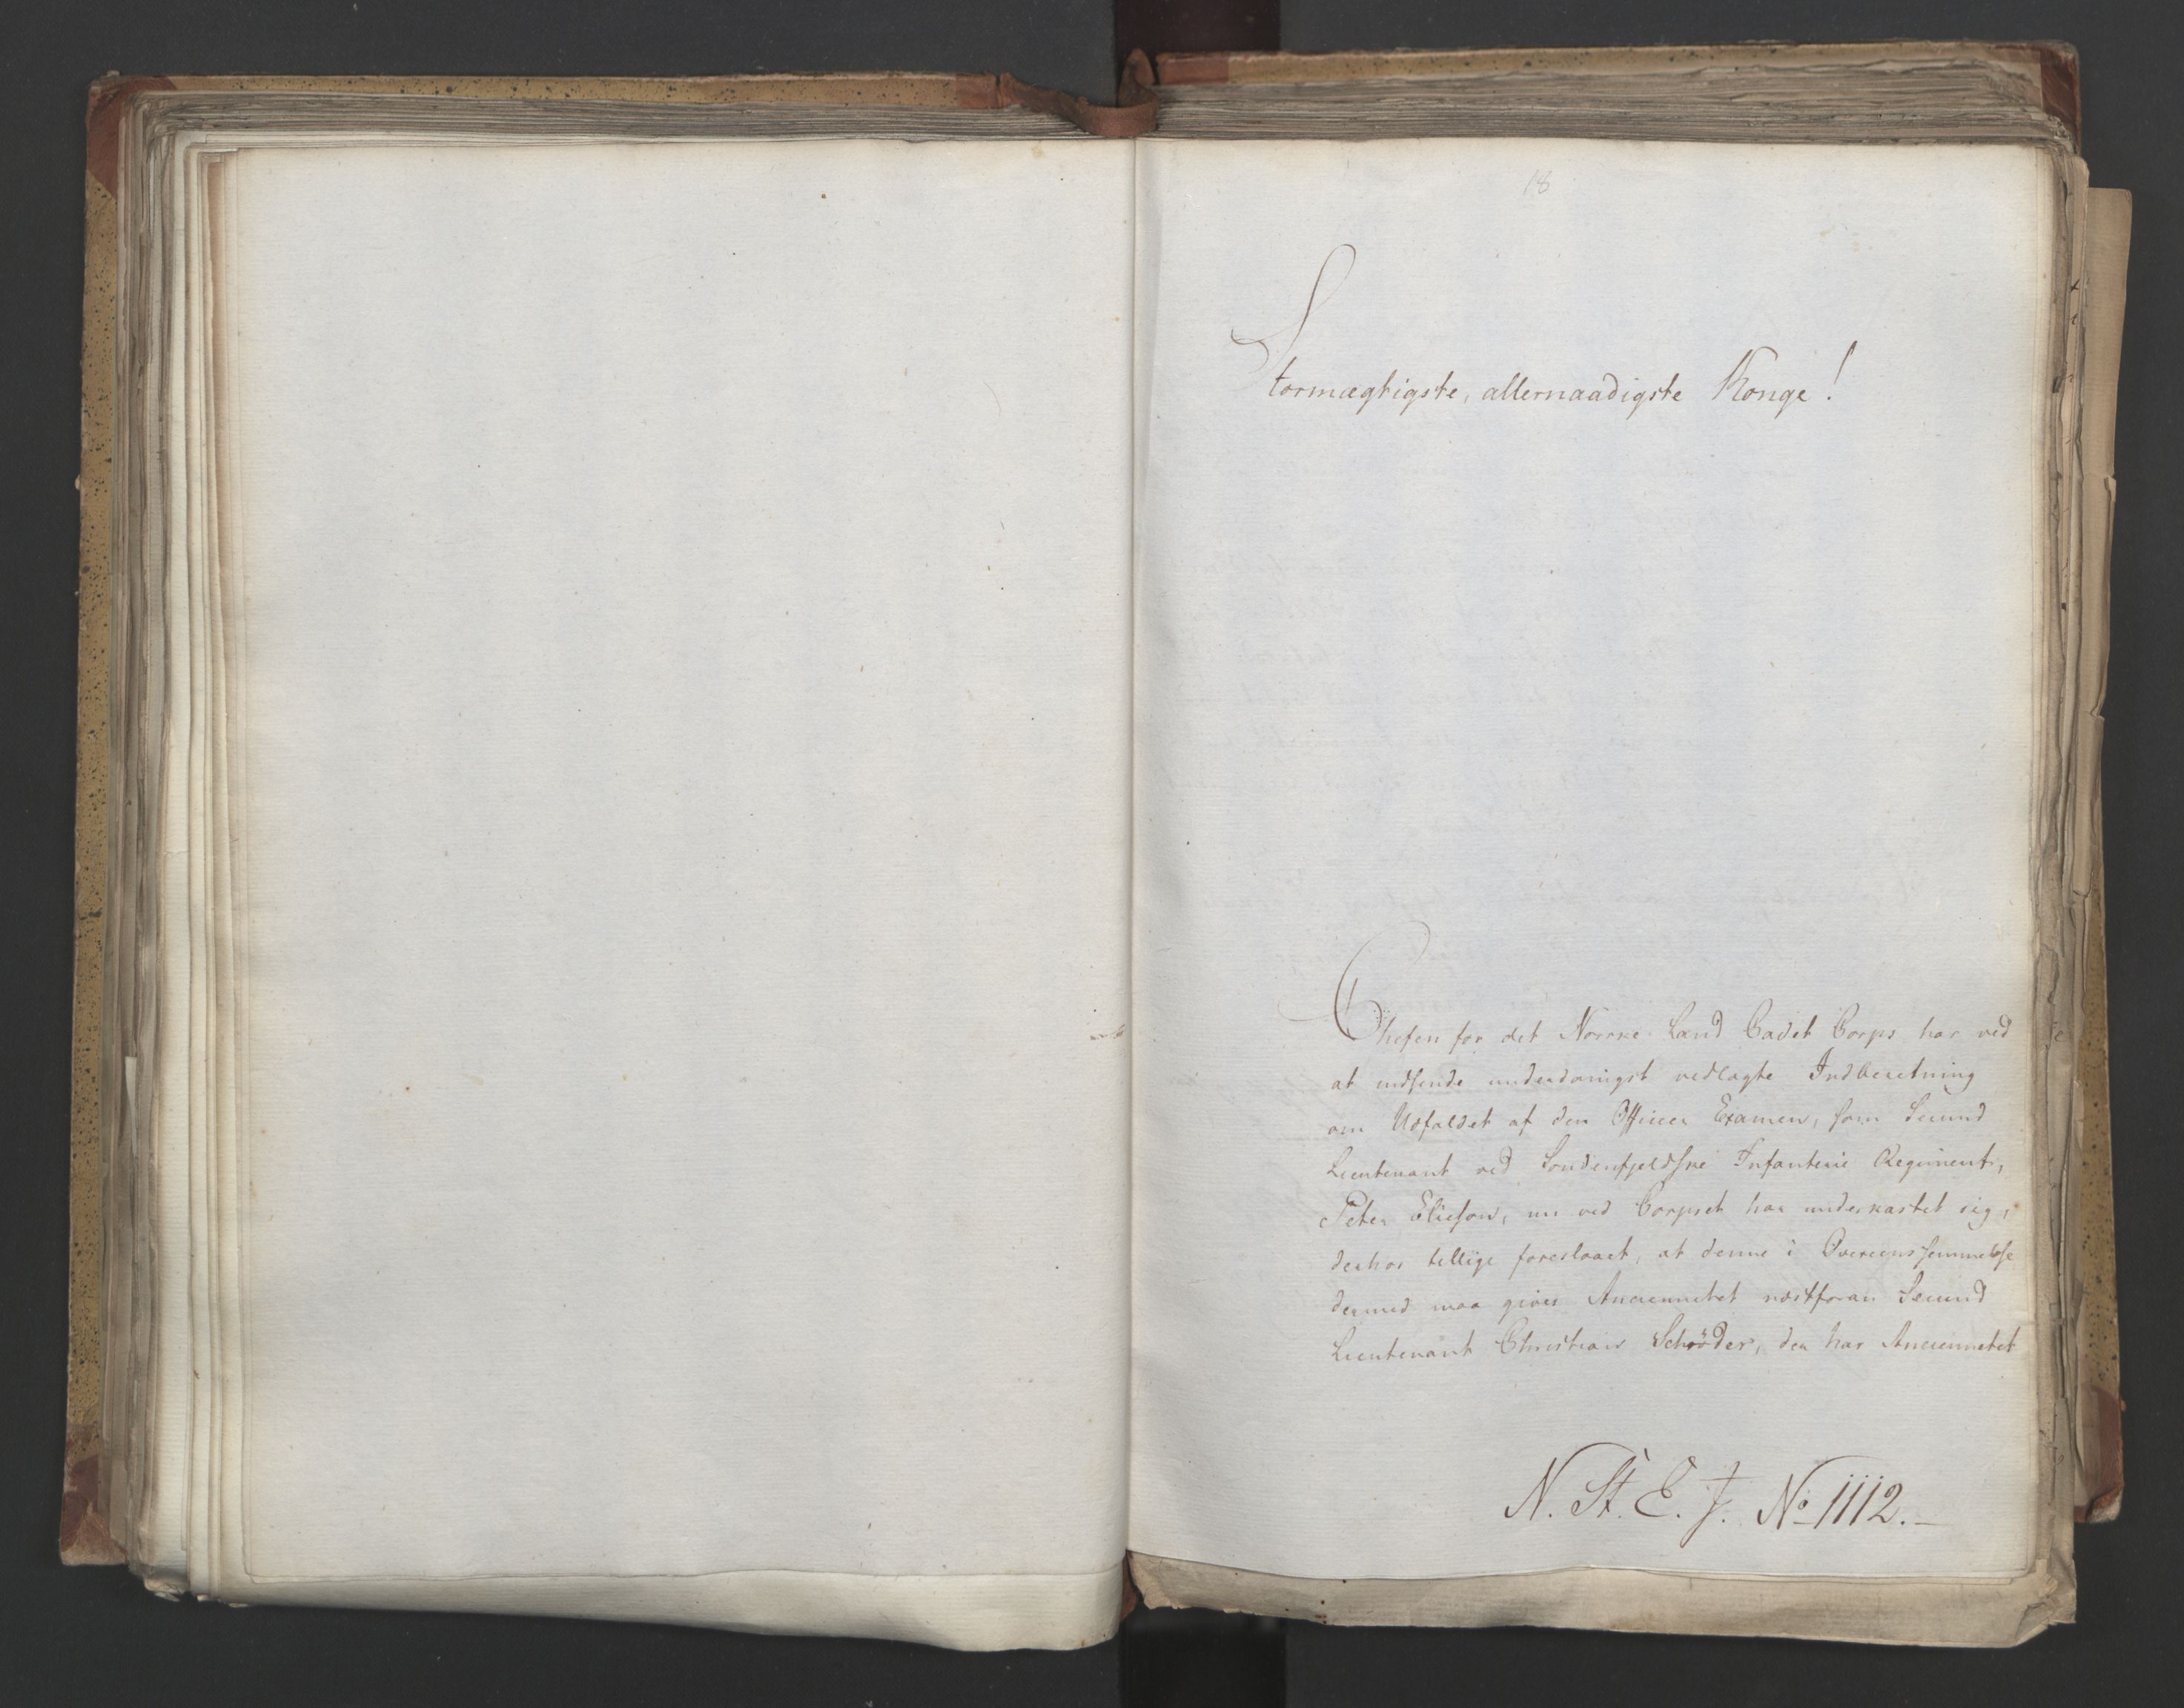 18
Stormægtigste, allernaadigste Konge!
Chefen for det Norske Land Cadet Corps har ved
at indsende underdanigst vedlagte Indberetning
om Udfaldet af den Officer Examen, som Secund
Lieutenant ved Søndenfjeldske Infanterie Regiment,
Peter Elieson, nu ved Corpset har underkastet sig,
derhos tillige foreslaaet, at denne i Overeensstemmelse
dermed maa gives Anciennetet næstforan Secund
Lieutenant Christian Schrøder, der har Anciennetet
N. St. E. J. No 1112.